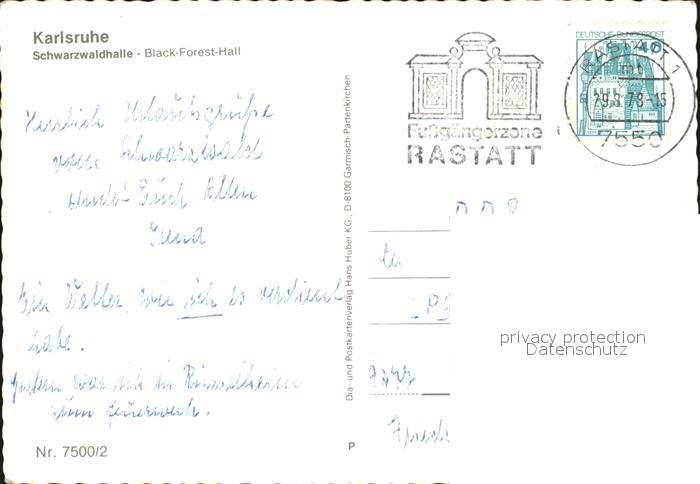 Karlsruhe
Schwarzwaldhalle - Black-Forest-Hall
Herzlich Urlaubsgrüße
vom Schwarzwald
sendet Euch Allen
Irena
Ein Wetter, wie ich es verdient
habe.
Gestern war ich in Rüsselheim
zum Feuerwerk.
Nr. 7500/2
Dia- und Postkartenverlag Hans Huber KG., D-8100 Garmisch-Partenkirchen
P
Fußgängerzone
RASTATT
DEUTSCHE BUNDESPOST
40
RASTATT 1
78-15
7550
privacy protection
Datenschutz